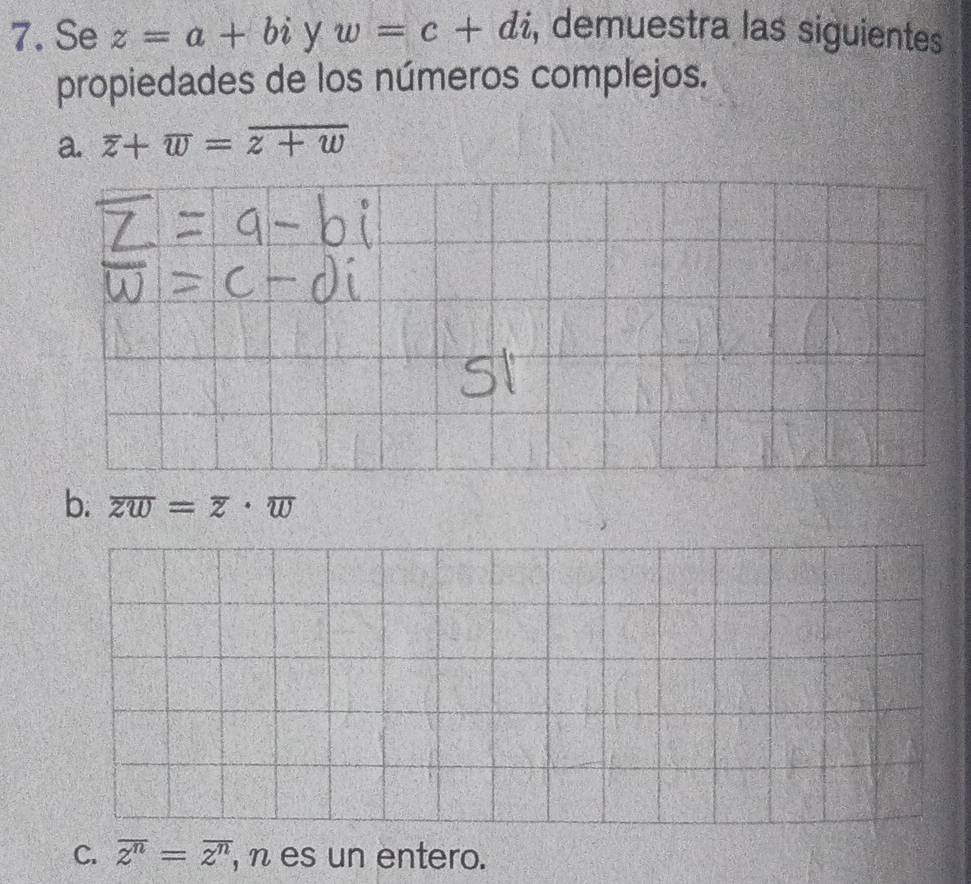 7. Se z = a + bi y w = c + di, demuestra las siguientes
propiedades de los números complejos.
a. z̅ + w̅ = \overline{z + w}
z̅ = a - bi
w̅ = c - di
SI
b. \overline{zw} = z̅ · w̅
c. \overline{z^n} = \overline{z^n}, n es un entero.